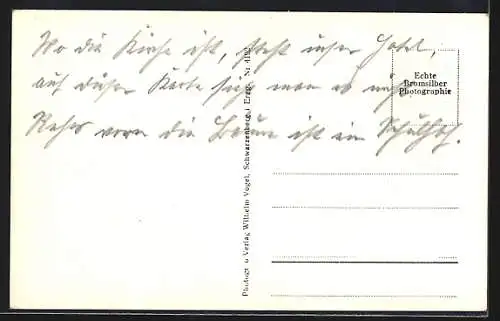 Wo die Kirche ist, steht unser Hotel,
auf dieser Karte sieht man es nicht.
Rechts vorn die Bäume ist ein Schulhof.
Echte
Bromsilber
Photographie
Photogr. u Verlag Wilhelm Vogel, Schwarzenberg i Erzgb. Nr 4192